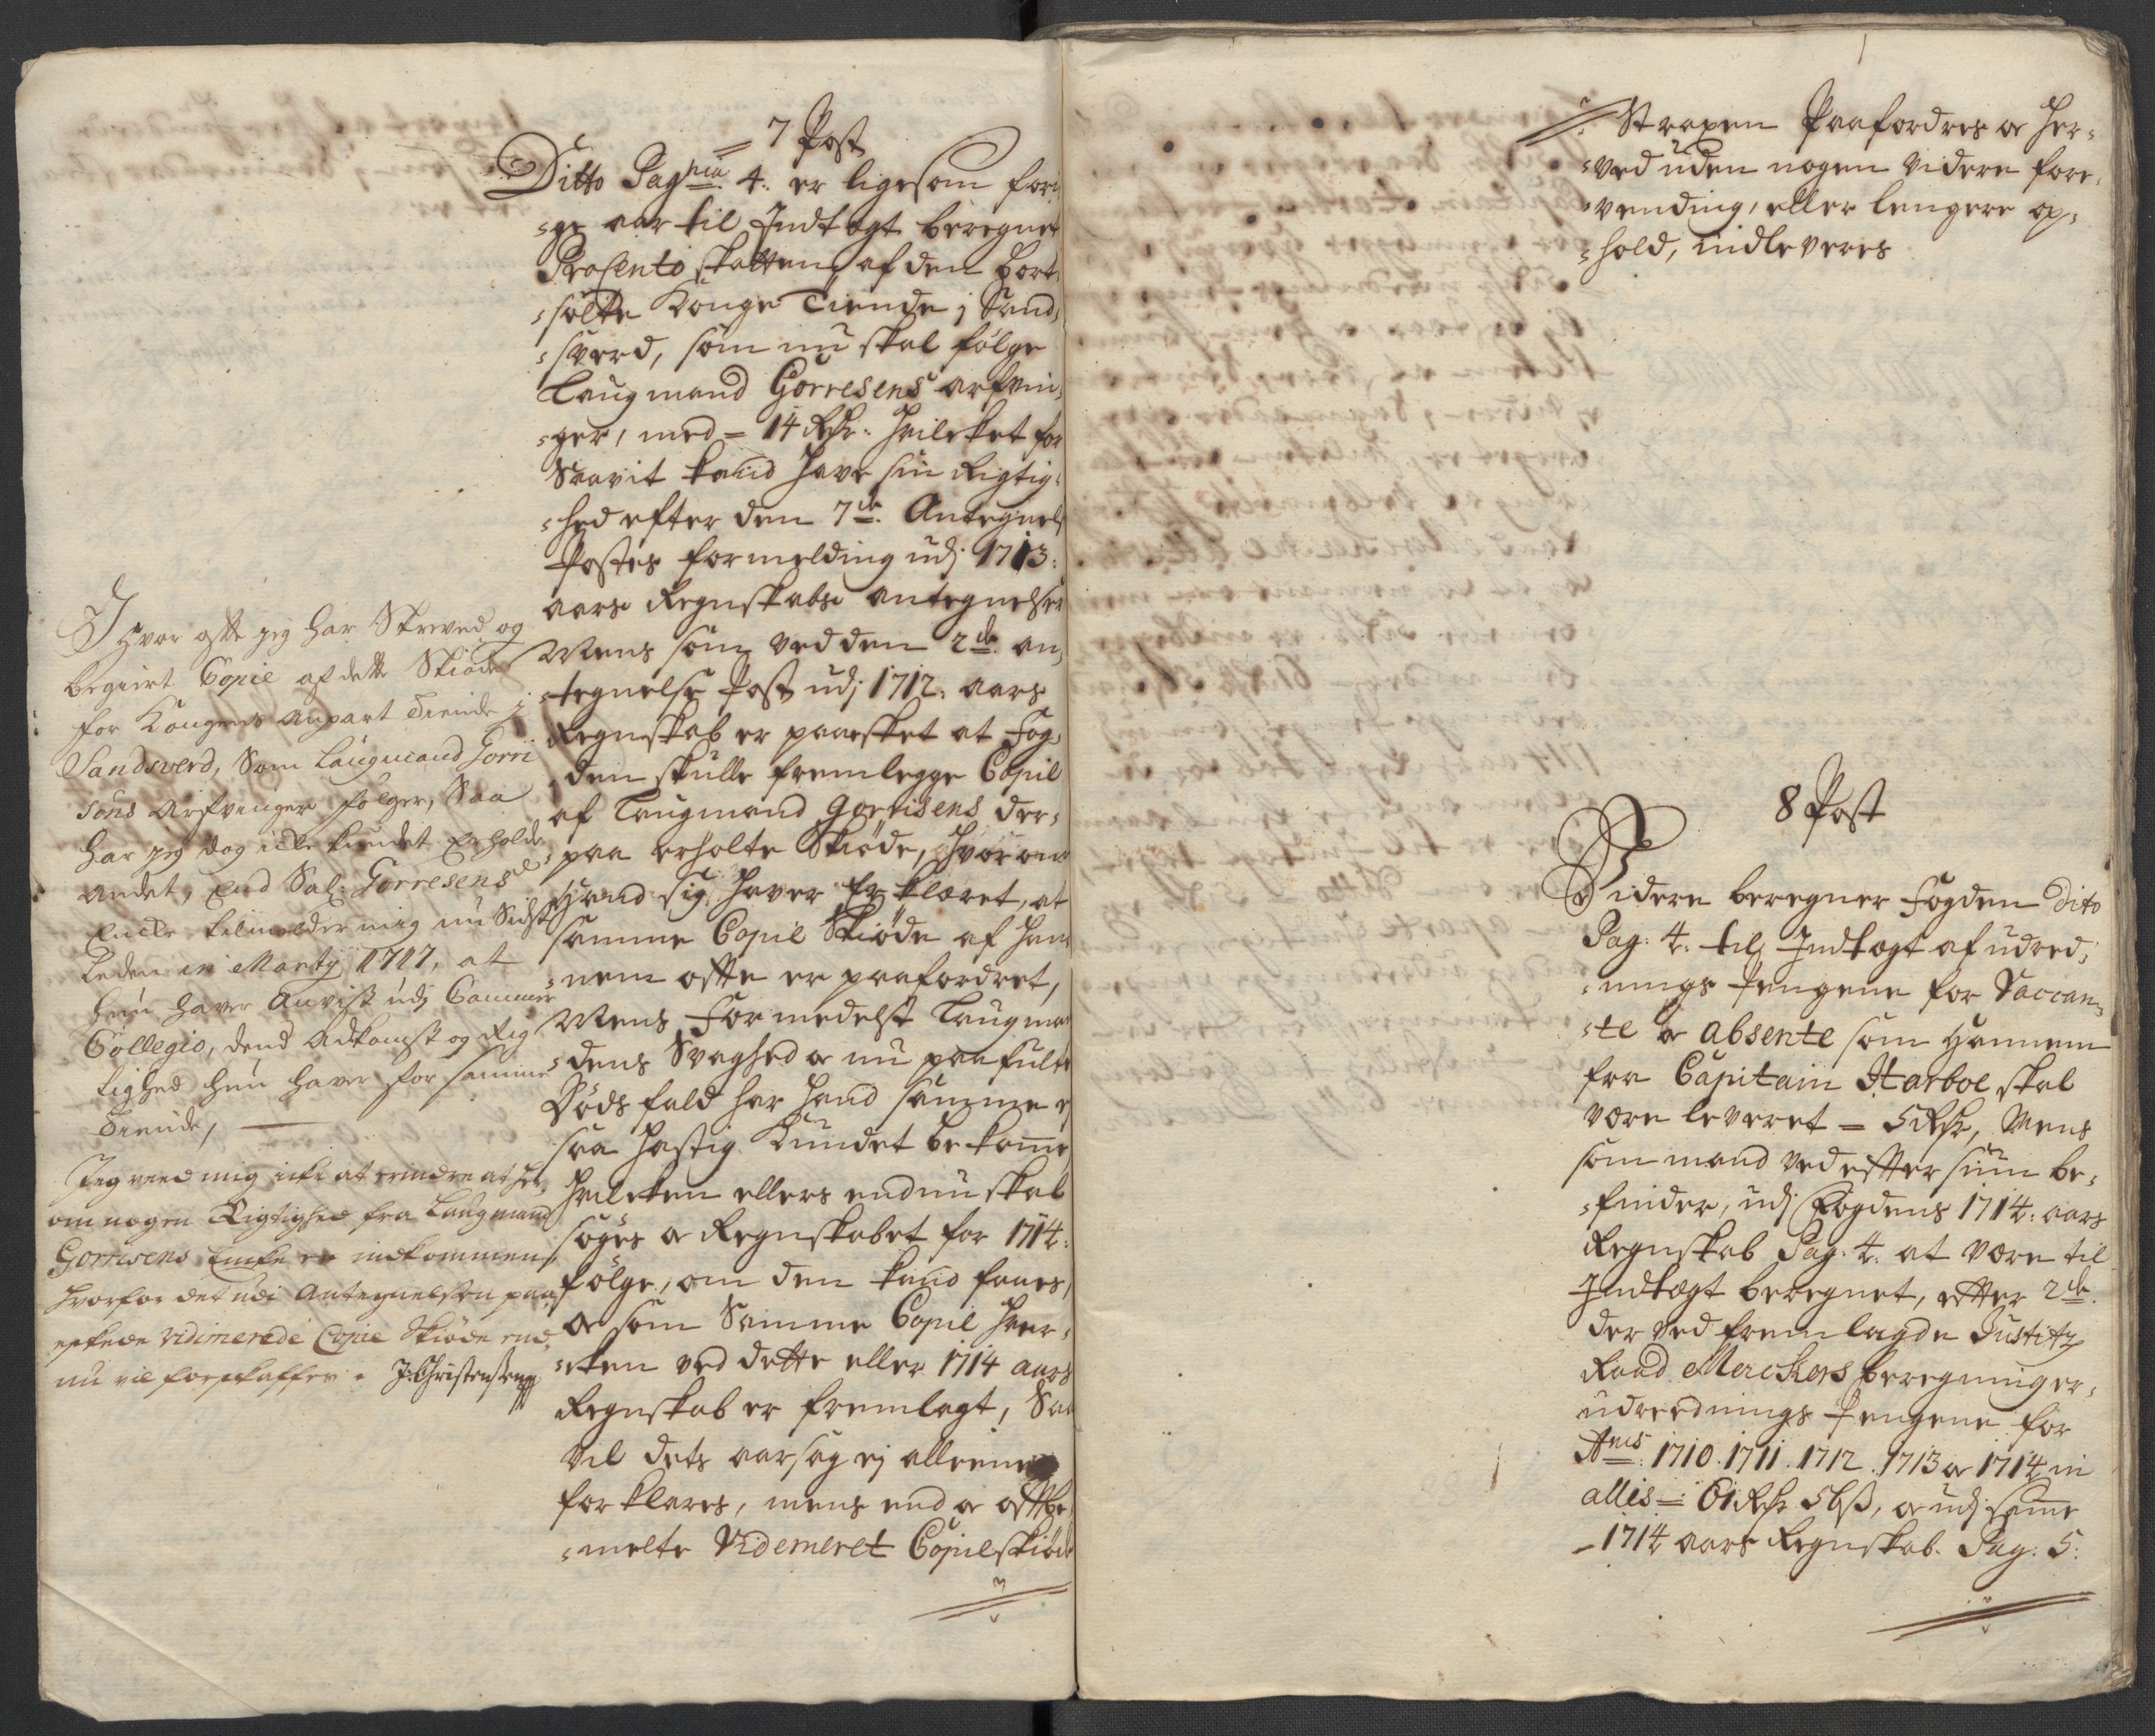 7 Post
Ditto Pag: 4. er ligesom fori
ge aar til Indtægt beregnet
Procento skatten af den bort
solte Konge Tiende i Sand
sverd, som nu skal følge
Laugmand Gorresens arfvin
ger, med = 14 Rdr: hvilcket for
saavit kand have sin Rigtig
hed efter den 7de Antegnels
Postes formelding udj 1713:
aars Regnskabs antegnelser
Mens som ved den 2de an
tegnelse Post udj 1712: aars
Regnskab er paaesket at Fog
den skulle fremlegge Copie
af Laugmand Gorrisens der
paa erholte Skiøde, hvorom
Hand sig haver Erklæret, at
samme Copie Skiøde af han
nem offte er paafordret,
Mens Formedelst Laugman
dens Svaghed og nu paafulte
Dødsfald har hand samme ej
saa hastig Kundet bekome
hvilcken ellers endnu skal
søges og Regnskabet for 1714:
følge, om den kand faaes,
og som Samme Copie hver
cken ved dette eller 1714 aars
Regnskab er fremlagt, Saa
vil dets aarsag ej alleene
forklares, mens end og offtbe
melte Videmeret Copie skiøde
Ihvor offte jeg har Skreved og
begiert Copie af dette Skiøde
for Kongens Anpart Tiende j
Sandsverd, Som Laugmand Gorri
sens Arfvinger følger, Saa
har jeg dog icke kundet Erholde
andet, End Sal: Gorresens
Encke tilmelder mig nu Sidst
leden in Martij 1717, at
hun haver Anvist udj Cammer
Collegio, dend Adkomst og Rig
tighed hun haver for samme
Tiende,
Jeg veed mig icke at erindre at her
om nogen Rigtighed fra Laugmand
Gorrisens Encke er indkommen,
hvorfor det udi Antegnelsen paa
eskede vidimerede Copie Skiøde end
nu vil forskaffes. J: Christensen
Straxen Paafordres og her
ved uden nogen videre fore
vending, eller lengere op
hold, indleveres
8 Post
Videre beregner Fogden Dito
Pag: 4. til Indtægt af udred
nings Pengene for Vaccan
te og absente som Hannem
fra Capitain Harboe skal
være leveret = 5 Rdr, Mens
som mand ved eftter siun be
finder, udj Fogdens 1714: aars
Regnskab Pag: 4. at være til
Indtægt beregnet, eftter 2de
der ved fremlagde Justitz
Raad Merckers beregninger
udreednings Pengene for
Anis: 1710. 1711. 1712. 1713 og 1714 in
allis = 61 Rdr 56 ß, og udj same
1714 aars Regnskab. Pag: 5: